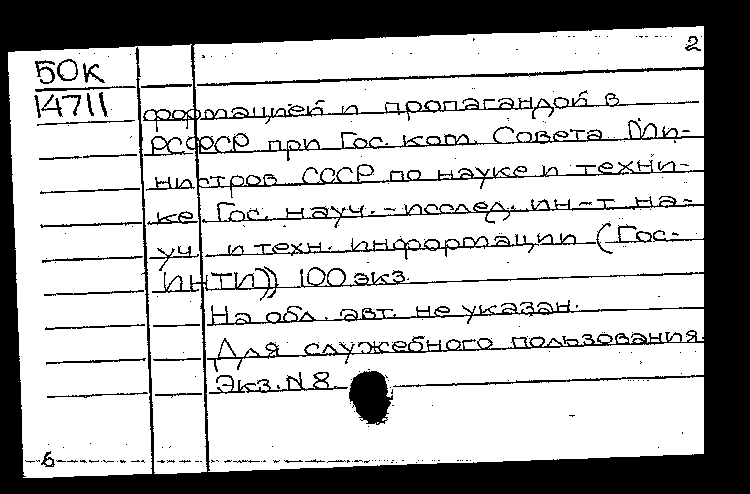 2
50к
14711
формацией и пропагандой в
РСФСР при Гос. ком. Совета Ми-
нистров СССР по науке и техни-
ке. Гос. науч.-исслед. ин-т на-
уч. и техн. информации (Гос-
ИНТИ)) 100 экз.
На обл. авт. не указан.
Для служебного пользования.
Экз. N 8
б